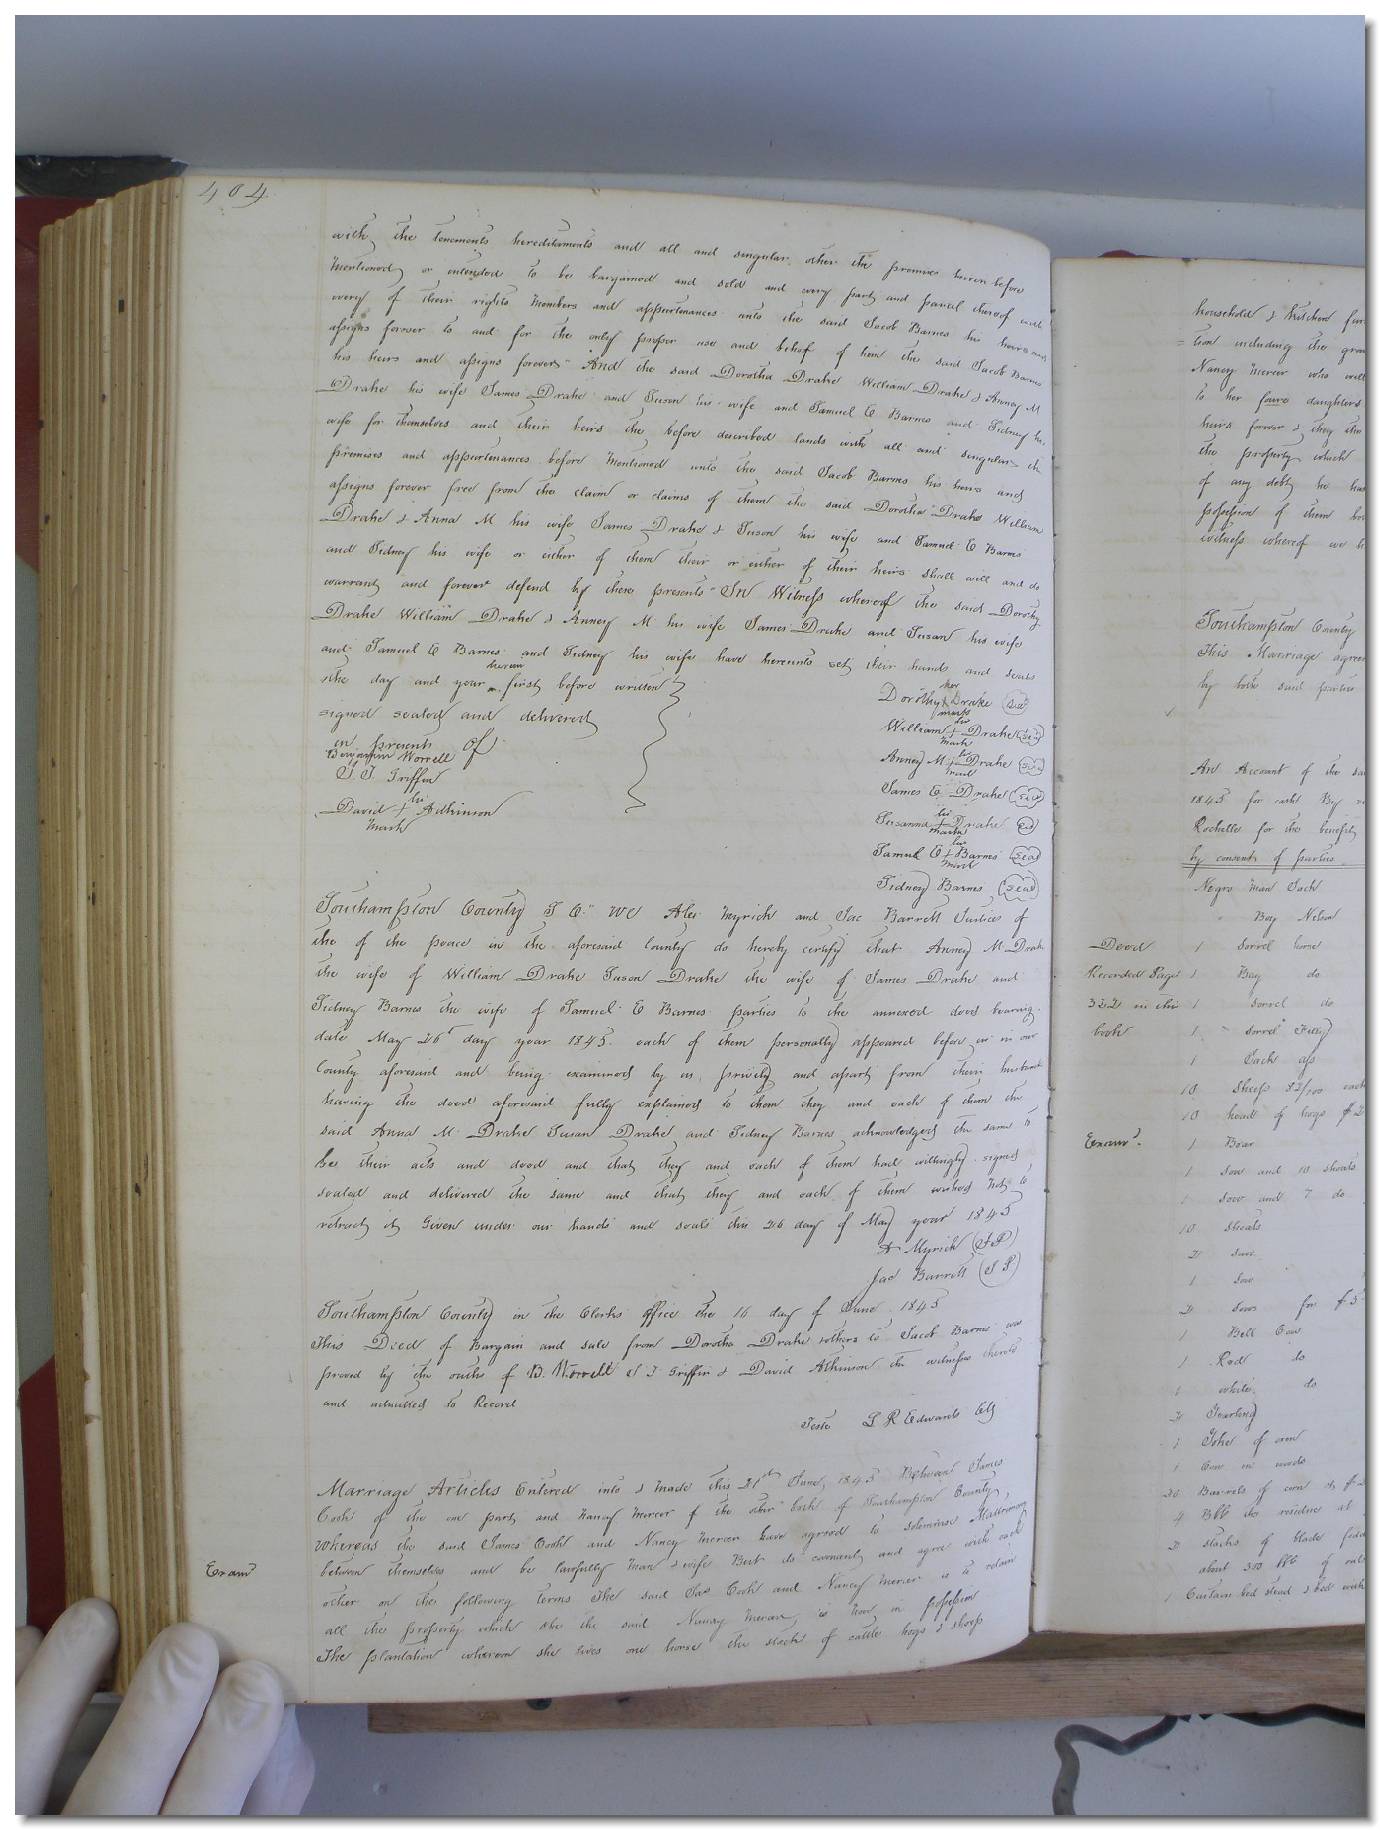 404
with the tenements hereditaments and all and singular other the premises herein before
mentioned or intended to be bargained and sold and every part and parcel thereof with
every of their rights members and appurtenances unto the said Jacob Barnes his heirs and
assigns forever to and for the only proper use and behof of him the said Jacob Barnes
his heirs and assigns forever And the said Dorotha Drake William Drake & Anney M
Drake his wife James Drake and Suson his wife and Samuel E Barnes and Sidney his
wife for themselves and their heirs the before described lands with all and singular the
premises and appurtenances before mentioned unto the said Jacob Barnes his heirs and
assigns forever free from the claim or claims of them the said Dorotha Drake William
Drake & Anna M his wife James Drake & Suson his wife and Samuel E Barnes
and Sidney his wife or either of them their or either of their heirs shall will and do
warrant and forever defend by these presents In Witness whereof the said Dorothy
Drake William Drake & Anney M his wife James Drake and Susan his wife
and Samuel E Barnes and Sidney his wife have hereunto set their hands and seals
the day and year herein first before written
signed sealed and delivered
in presents of
Benjamin Worrell
S. J. Griffin
David his + Adkinson
mark
Dorothy her + Drake Seal
mark
William his + Drake Seal
mark
Anney M + Drake Seal
mark
James E Drake Seal
Susanna his + Drake Seal
mark
Samuel E his + Barnes Seal
mark
Sidney Barnes Seal
Southampton County S C. We Alex Myrick and Jac Barrett Justices of
the of the peace in the aforesaid County do hereby certify that Anney M Drake
the wife of William Drake Suson Drake the wife of James Drake and
Sidney Barnes the wife of Samuel E Barnes parties to the annexed deed bearing
date May 26 day year 1845 each of them personally appeared before us in our
County aforesaid and being examined by us privily and apart from their husband
having the deed aforesaid fully explained to them they and each of them the
said Anna M Drake Susan Drake and Sidney Barnes acknowledged the same to
be their acts and deed and that they and each of them had willingly signed
sealed and delivered the same and that they and each of them wished not to
retract it Given under our hands and seals this 26 day of May year 1845
A Myrick (J P)
Jac Barrett (J P)
Southampton County in the Clerks office the 16 day of June 1845
This Deed of Bargain and sale from Dorotha Drake & others to Jacob Barnes was
proved by the oaths of B. Worrell S J Griffin & David Atkinson the witnesses thereto
and admitted to Record
Teste L R Edwards Clk
Marriage Articles Entered into & made this 21st June 1845 Between James
Cook of the one part and Nancy Mercer of the other both of Southampton County
Whereas the said James Cook and Nancy Mercer have agreed to solemnise Matrimony
between themselves and be lawfully man & wife But do covenant and agree with each
other on the following terms The said Jas Cook and Nancy Mercer is to retain
all the property which she the said Nancy Mercer is now in possession
The plantation whereon she lives one horse the stock of cattle hogs & sheep
Exam
household & kitchen fur
tion including the gro
Nancy Mercer who will
to her four daughters
heirs forever & they the
the property which
of any debts he has
possession of them
witness whereof we h
Southampton County
This Marriage agree
by both said parties
An Account of the sa
1845 for cash By
Rochelle for the benefit
by consent of parties
Negro man Jack
Boy Nelson
Deed
Recorded Page
332 in this
book
1 Sorrel horse
1 Bay do
1 Sorrel do
1 Sorrel Filly
1 Jack ass
10 Sheep $2/100 each
10 head of hogs $2
Exam.
1 Boar
1 Sow and 10 shoats
1 Sow and 7 do
10 Shoats
2 Sow
1 Sow
2 Sows for $5
1 Bell Cow
1 Red do
1 white do
2 Yearling
1 Yoke of oxen
1 Cow in woods
20 Barrels of corn at $2
4 Bbl do residue at
2 stacks of blade fodd
about 300 lbs of oats
1 Curtain bed stead & bed with